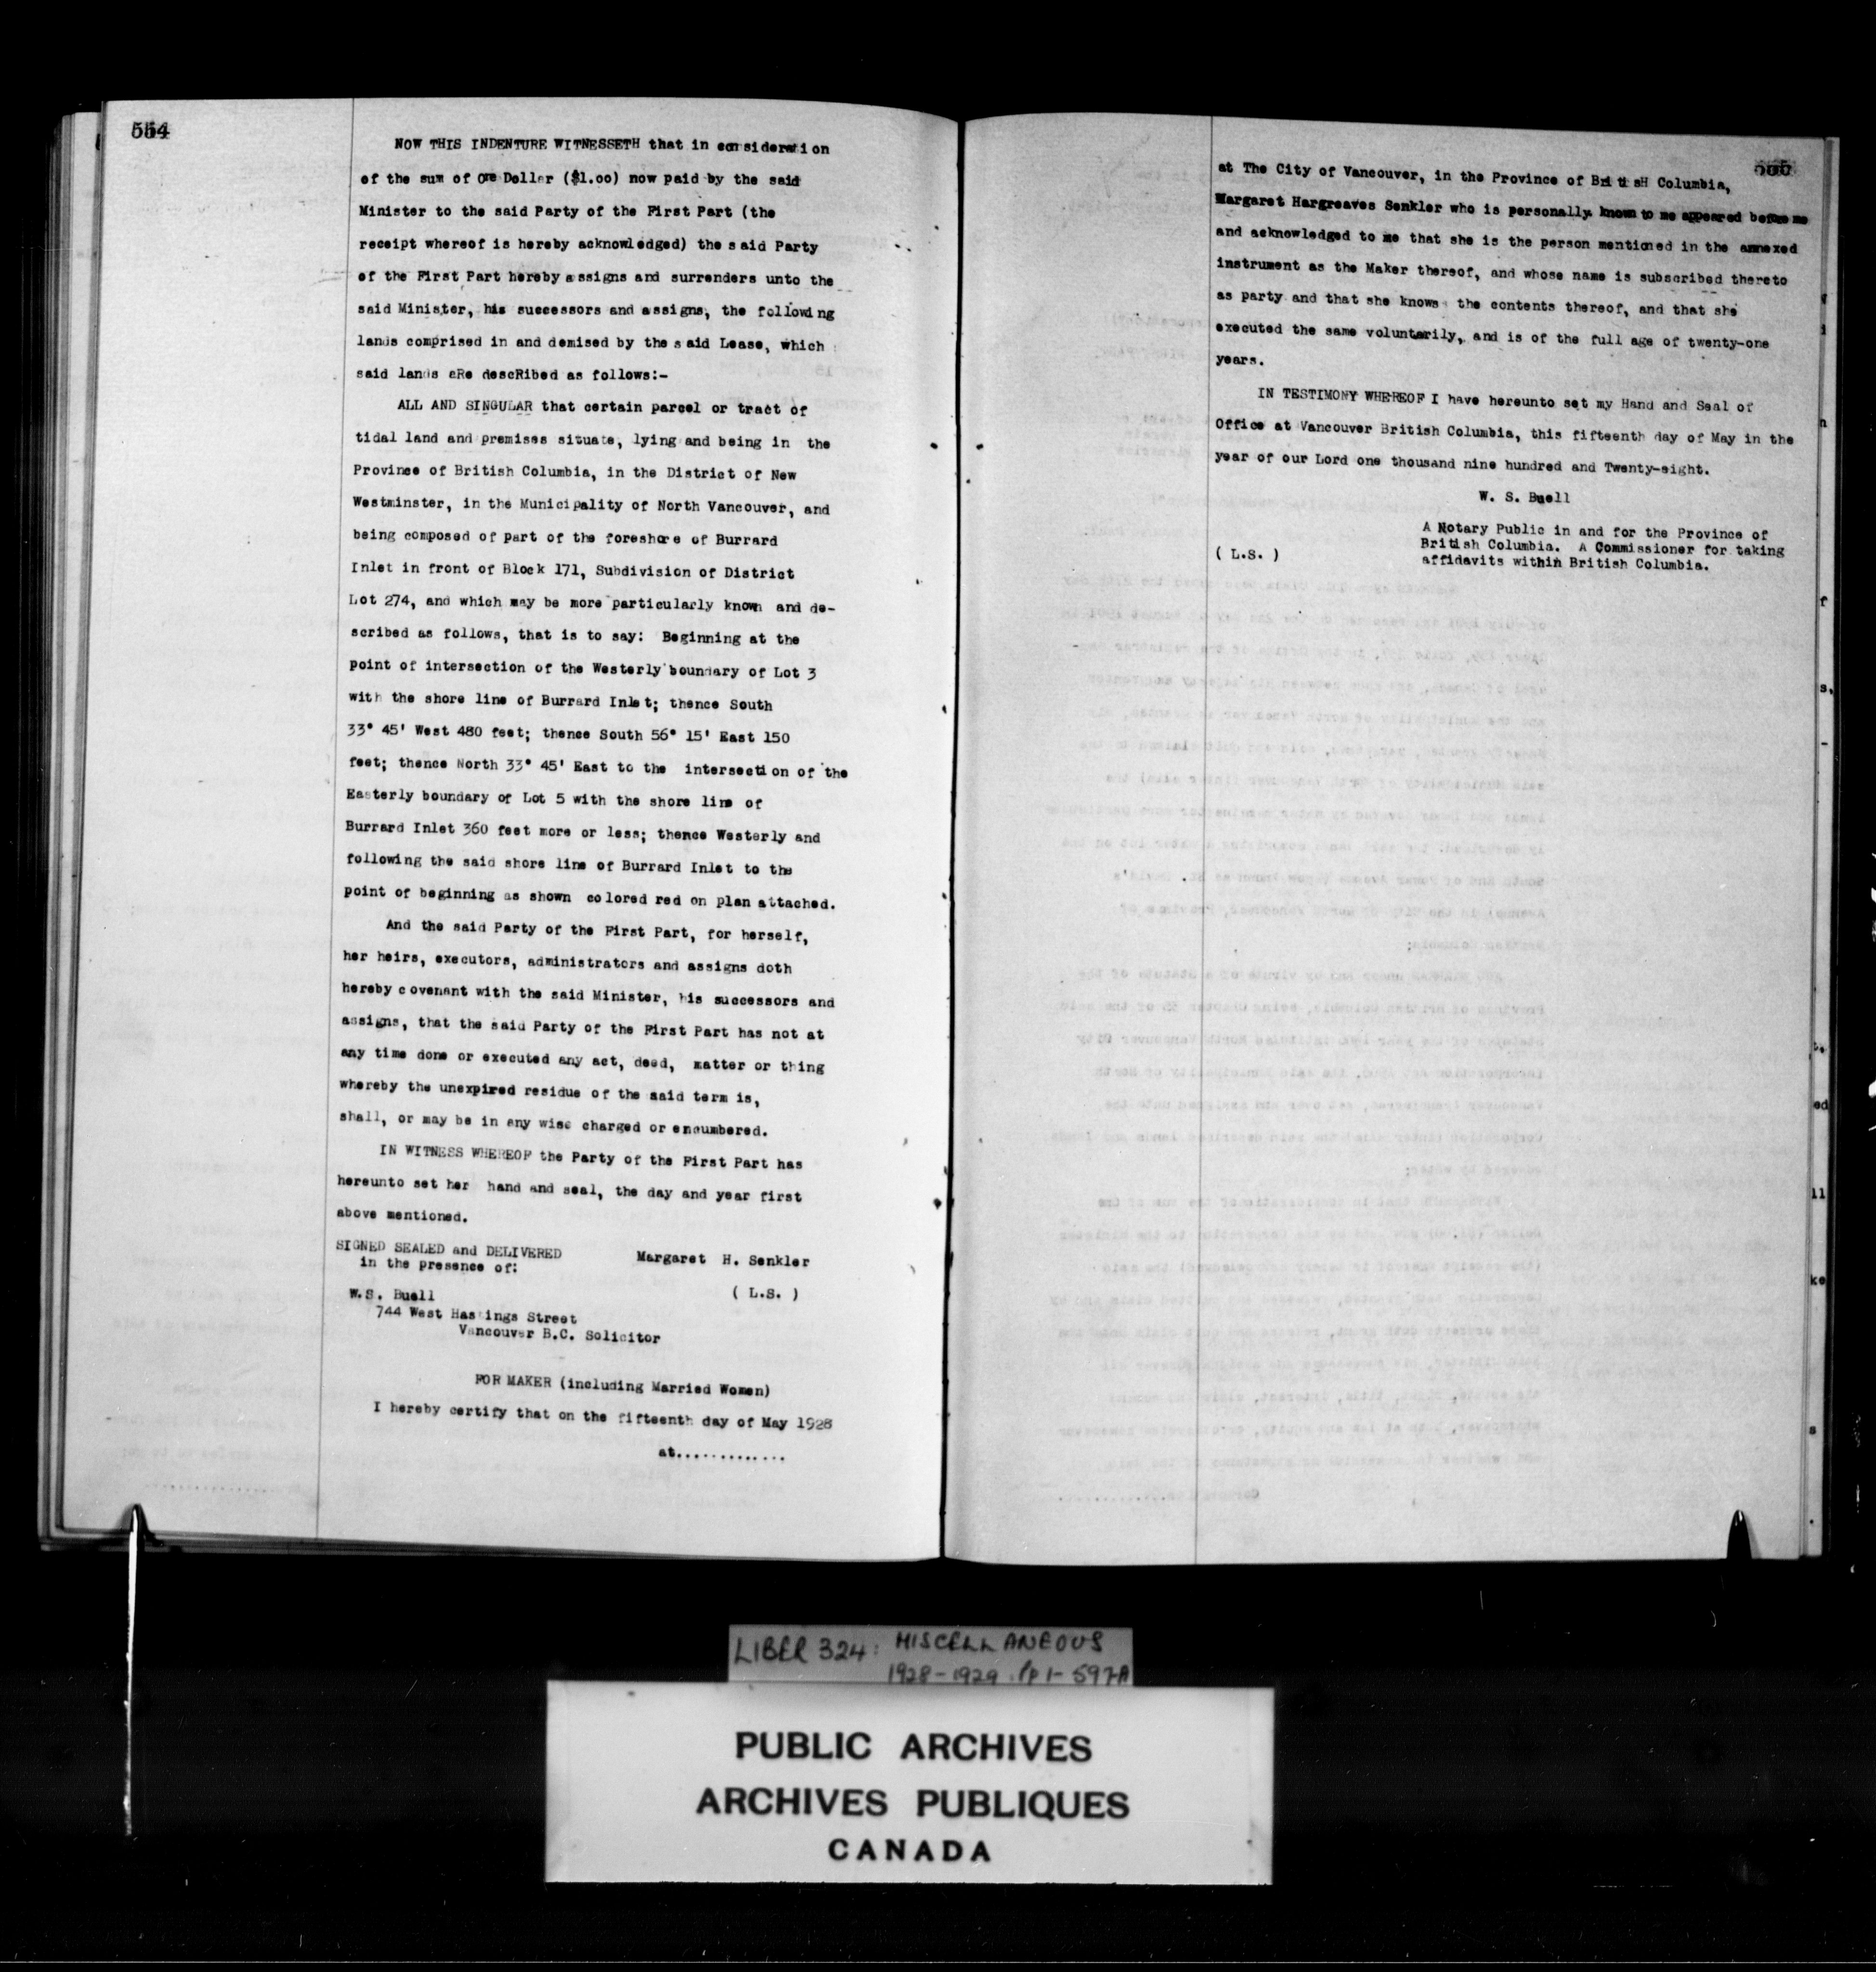 554
NOW THIS INDENTURE WITNESSETH that in consideration
of the sum of One Dollar ($1.oo) now paid by the said
Minister to the said Party of the First Part (the
receipt whereof is hereby acknowledged) the said Party
of the First Part hereby assigns and surrenders unto the
said Minister, his successors and assigns, the following
lands comprised in and demised by the said Lease, which
said lands aRe descRibed as follows:-
ALL AND SINGULAR that certain parcel or tract of
tidal land and premises situate, lying and being in the
Province of British Columbia, in the District of New
Westminster, in the Municipality of North Vancouver, and
being composed of part of the foreshore of Burrard
Inlet in front of Block 171, Subdivision of District
Lot 274, and which may be more particularly known and de-
scribed as follows, that is to say: Beginning at the
point of intersection of the Westerly boundary of Lot 3
with the shore line of Burrard Inlet; thence South
33° 45' West 480 feet; thence South 56° 15' East 150
feet; thence North 33° 45' East to the intersection of the
Easterly boundary of Lot 5 with the shore line of
Burrard Inlet 360 feet more or less; thence Westerly and
following the said shore line of Burrard Inlet to the
point of beginning as shown colored red on plan attached.
And the said Party of the First Part, for herself,
her heirs, executors, administrators and assigns doth
hereby covenant with the said Minister, his successors and
assigns, that the said Party of the First Part has not at
any time done or executed any act, deed, matter or thing
whereby the unexpired residue of the said term is,
shall, or may be in any wise charged or encumbered.
IN WITNESS WHEREOF the Party of the First Part has
hereunto set her hand and seal, the day and year first
above mentioned.
SIGNED SEALED and DELIVERED
in the presence of:
Margaret H. Senkler
W.S. Buell
( L.S. )
744 West Hastings Street
Vancouver B.C. Solicitor
FOR MAKER (including Married Women)
I hereby certify that on the fifteenth day of May 1928
at.............
at The City of Vancouver, in the Province of BritisH Columbia,
Margaret Hargreaves Senkler who is personally known to me appeared before me
and acknowledged to me that she is the person mentioned in the annexed
instrument as the Maker thereof, and whose name is subscribed thereto
as party and that she knows the contents thereof, and that she
executed the same voluntarily, and is of the full age of twenty-one
years.
IN TESTIMONY WHEREOF I have hereunto set my Hand and Seal of
Office at Vancouver British Columbia, this fifteenth day of May in the
year of our Lord one thousand nine hundred and Twenty-eight.
W. S. Buell
A Notary Public in and for the Province of
British Columbia. A Commissioner for taking
affidavits within British Columbia.
( L.S. )
LIBER 324: MISCELLANEOUS
1928-1929. pp 1-597A
PUBLIC ARCHIVES
ARCHIVES PUBLIQUES
CANADA